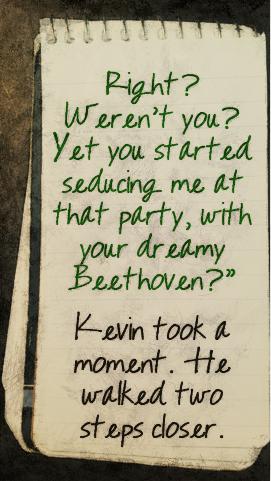 Right?
Weren't you?
Yet you started
seducing me at
that party, with
your dreamy
Beethoven?"
Kevin took a
moment. He
walked two
steps closer.